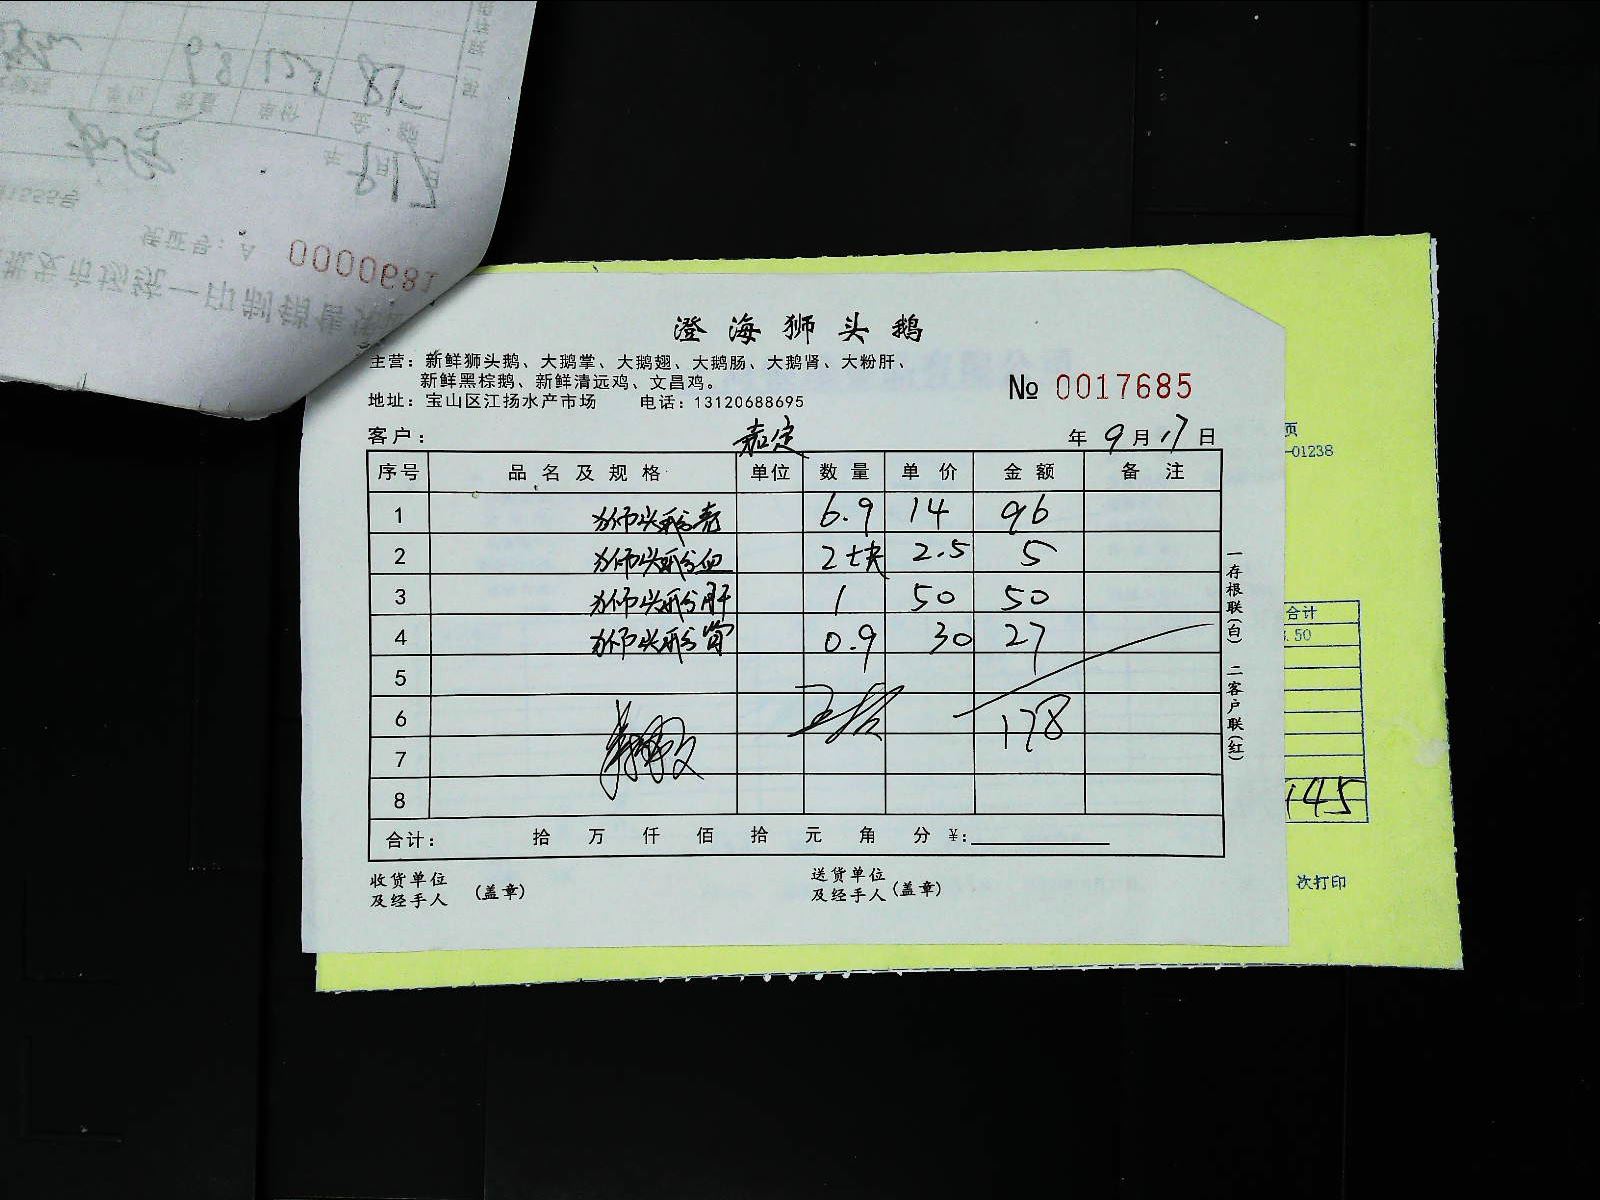 澄海狮头鹅
主营：新鲜狮头鹅、大鹅掌、大鹅翅、大鹅肠、大鹅肾、大粉肝、
新鲜黑棕鹅、新鲜清远鸡、文昌鸡。
№ 0017685
地址：宝山区江扬水产市场 电话：13120688695
客户： 嘉定 年 9 月 17 日
序号 品名及规格 单位 数量 单价 金额 备注
1 狮头鹅壳 6.9 14 96
2 狮头鹅血 2块 2.5 5
3 狮头鹅肝 1 50 50
4 狮头鹅肾 0.9 30 27
5
6 178
7
8
合计： 拾 万 仟 佰 拾 元 角 分 ¥:
收货单位
及经手人 (盖章)
送货单位
及经手人 (盖章)
一存根联(白) 二客户联(红)
页
-01238
合计
.50
145
次打印
金额
单价
数量
单位
9.8 125
年 8月17日
凭证号：A 0000681
批发市场统一印制销售
1555号